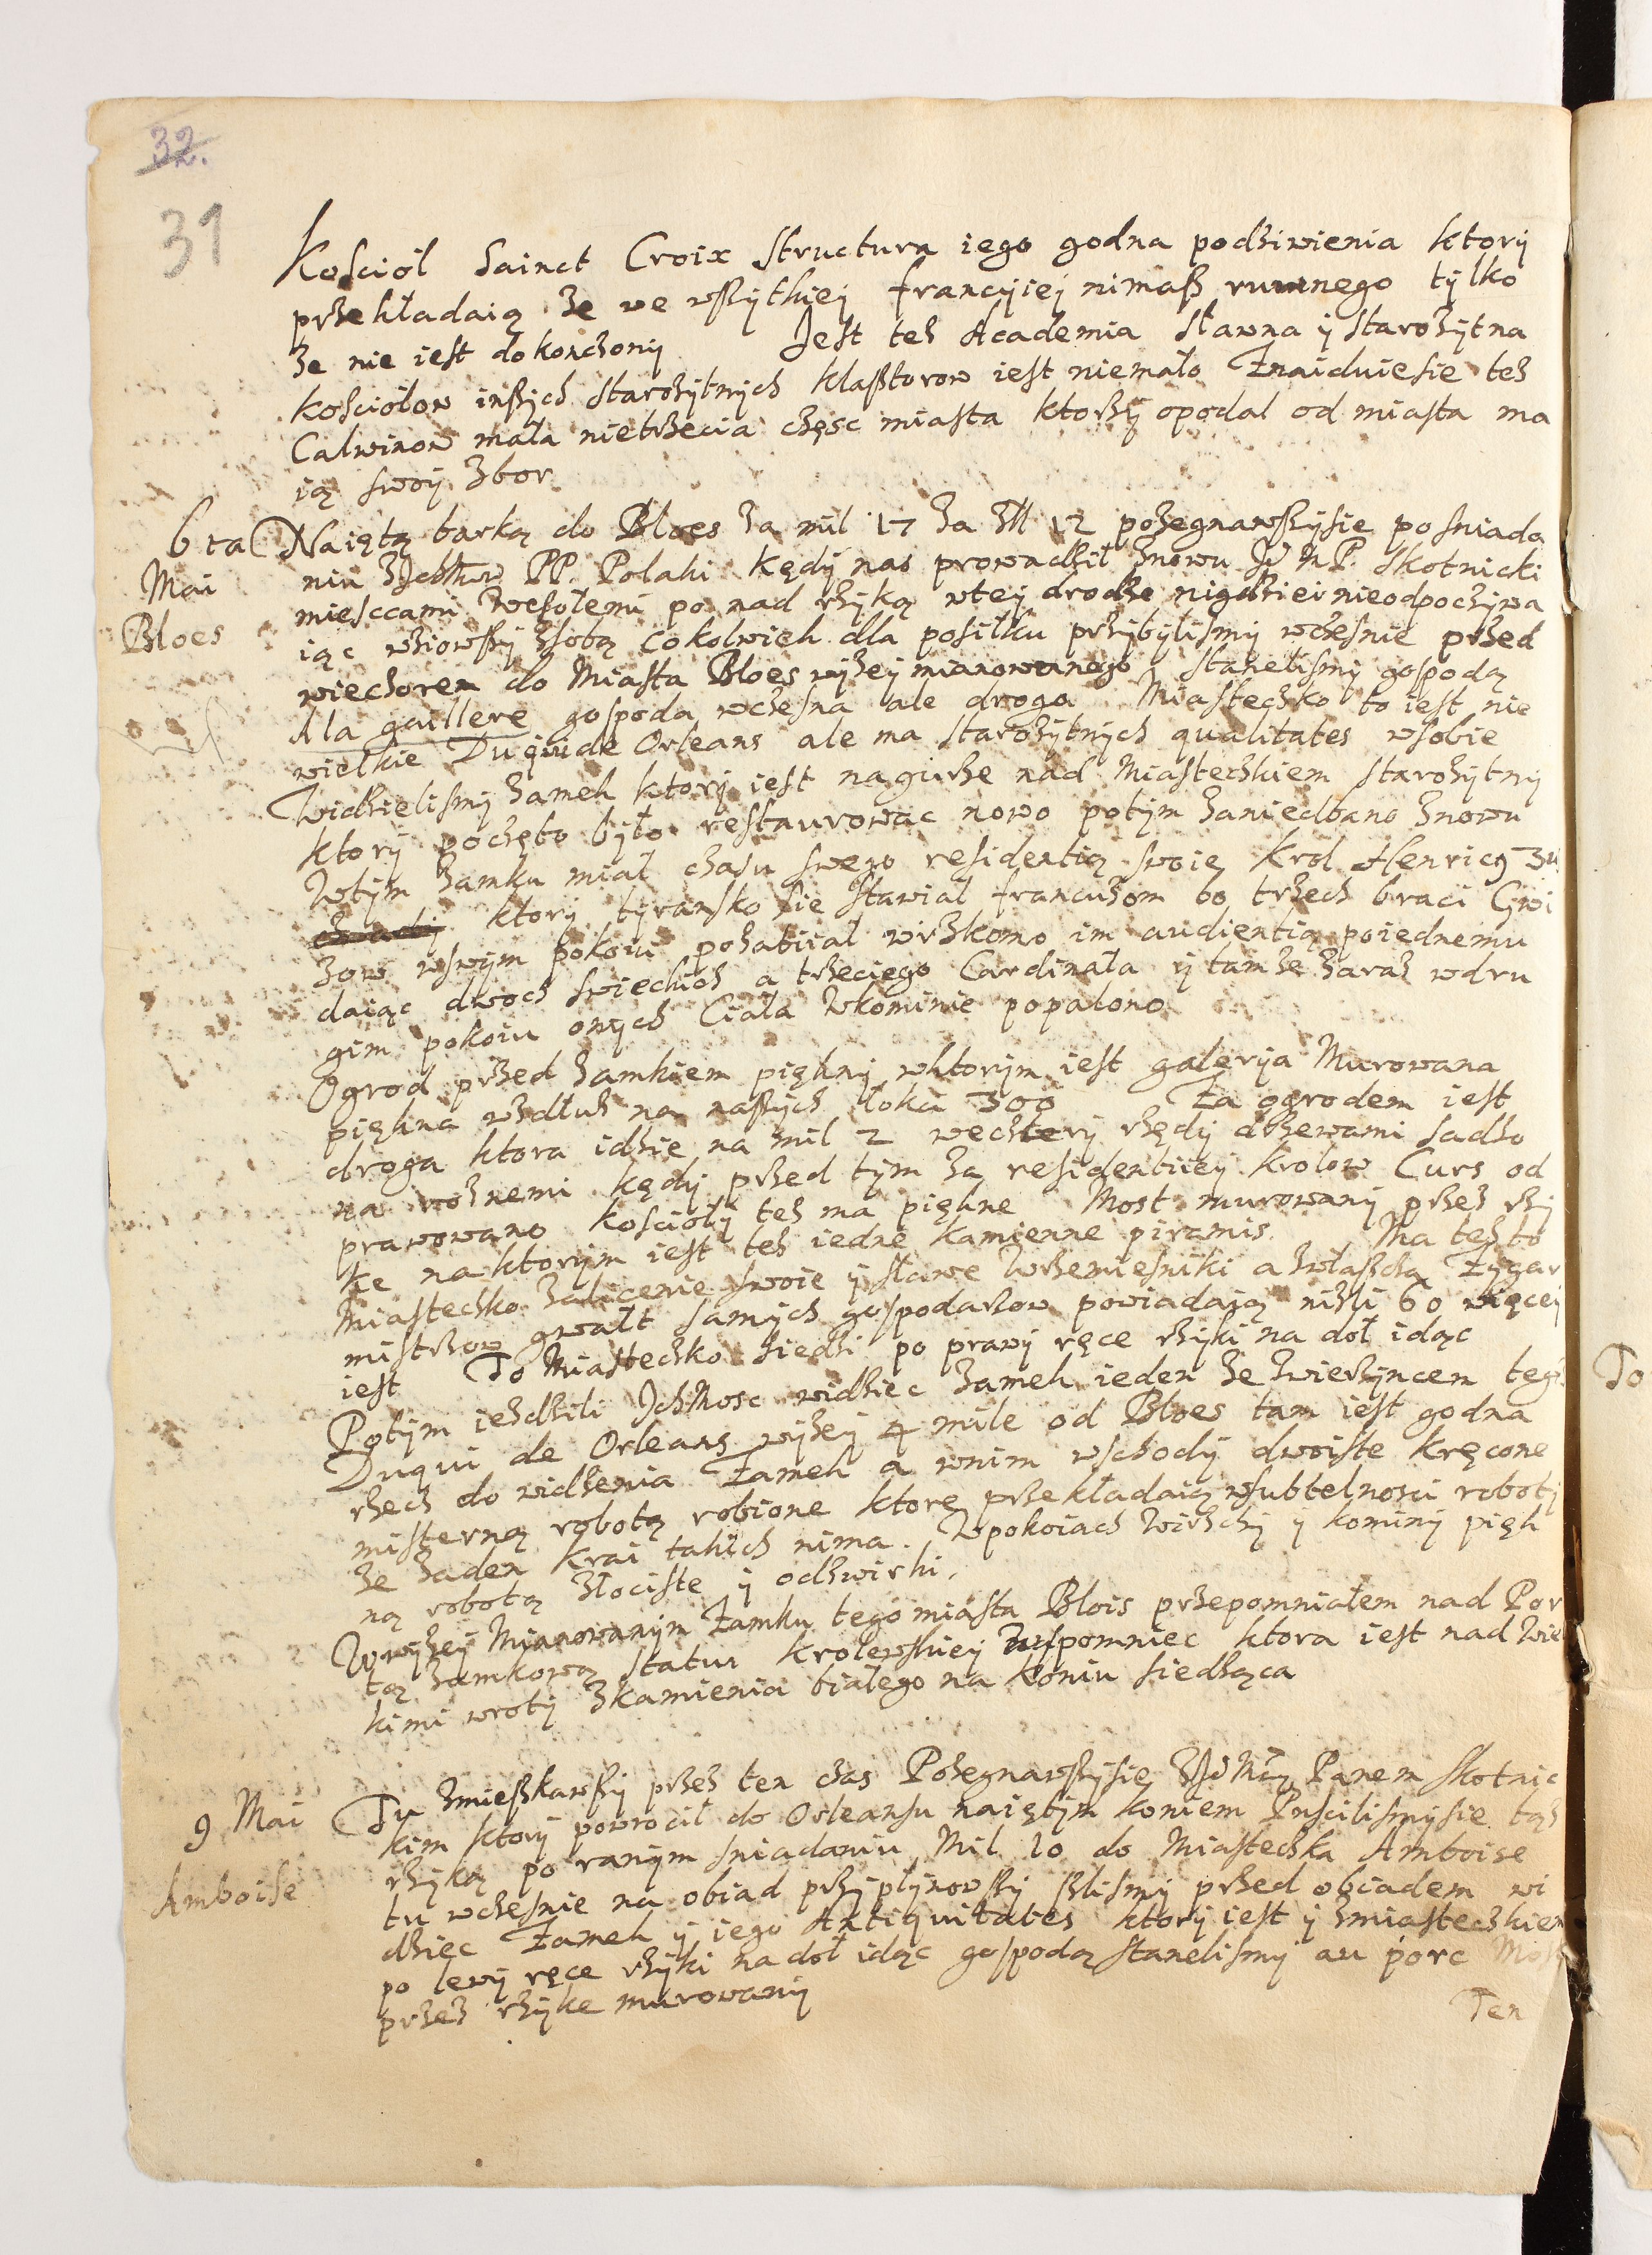 32.
31
Kosciół Sainct Croix structura iego godna podziwienia ktory
przekładaią ze we wszytkiey francyiey nimasz ruwnego tylko
ze nie iest dokonczony Jest tez Academia sławna y starozytna
kosciołow inszych starozytnych klasztorow iest niemało Znaiduiesie tez
Calwinow mała nietrzecia częsc miasta ktorzy opodal od miasta ma
ią swoy zbor
6 ta Naiętą barką do Bloes za mil 17 za 12 pozegnawszysie posniada
Mai niu PP. Polaki kędy nas prowadził znowu P. Skotnicki
Bloes miesccami wesołemi po nad rzyką wtey drodze nigdziei nieodpoczywa
iąc wziowszy zsobą cokolwiek dla posiłku przybylismy wczesnie przed
wieczorem do Miasta Bloes wyzey mianowanego stanelismy gospodą
A la gallere gospoda wczesna ale droga Miasteczko to iest nie
wielkie Duqui de Orleans ale ma starozytnych qualitates wsobie
Widzielismy zamek ktory iest nagurze nad Miasteczkiem starozytny
ktory poczęto było restaurowac nowo potym zaniedbano znowu
Wtym zamku miał czasu swego residentią swoię Krol Henricus
ktory tyransko sie stawiał francuzom bo trzech braci Gwi
zow wswym pokoiu pozabiiał wirzkomo im audientią poiednemu
daiąc dwoch swieckich a trzeciego Cardinała y tamze zaraz wdru
gim pokoiu onych Ciała wkominie popalono
Ogrod przed zamkiem piękny wktorym iest galeryia Murowana
piękna wzdłuz na naszych łoku 300 Za ogrodem iest
droga ktora idzie na mil 2 wecztery rzędy drzewami sadzo
na roznemi kędy przed tym za residentiiey Krolow Curs od
prawowano Koscioły tez ma piękne Most murowany przez rzy
ke naktorym iest tez iedne kamienne piramis. Ma tez to
Miasteczko zalicenie swoie y sławe Wrzemiesniki a zwłaszcza Zygar
mistrzow gwałt samych gospodarzow powiadaią nizli 60 więcey
iest To Miasteczko siedzi po prawy ręce rzyki na doł idąc
Potym iezdzili Ichmosc widziec zamek ieden ze zwierzyncem tego
Duqui de Orleans wyzey 4 mile od Bloes tam iest godna
rzecz do widzenia Zamek a wnim wschody dwoiste kręcone
misterną robotą robione ktore przekładaią wsubtelnosci roboty
ze zaden Krai takich nima. Wpokoiach Wirzchy y kominy pięk
ną robotą złociste y odzwirki.
Wwyzey Mianowanym Zamku tego miasta Blois przepomniałem nad Por
tą zamkową statui krolewskiey wspomniec ktora iest nad Wie
kimi wroty zkamienia białego na koniu siedząca
9 Mai Tu zmieszkawszy przez ten czas Pozegnawszysie Panem Skotnic
kim ktory powrocił do Orleansu naiętym koniem Puscilismysie tąz
Amboise rzyką po ranym sniadaniu Mil 10 do Miasteczka Amboise
tu wczesnie na obiad przypłynowszy szlismy przed obiadem wi
dziec Zamek y iego Antiquitates ktory iest y zmiasteczkiem
po lewy ręce rzyki na doł idąc gospodą stanelismy au porc Most
przez rzyke murowany
Ten
To